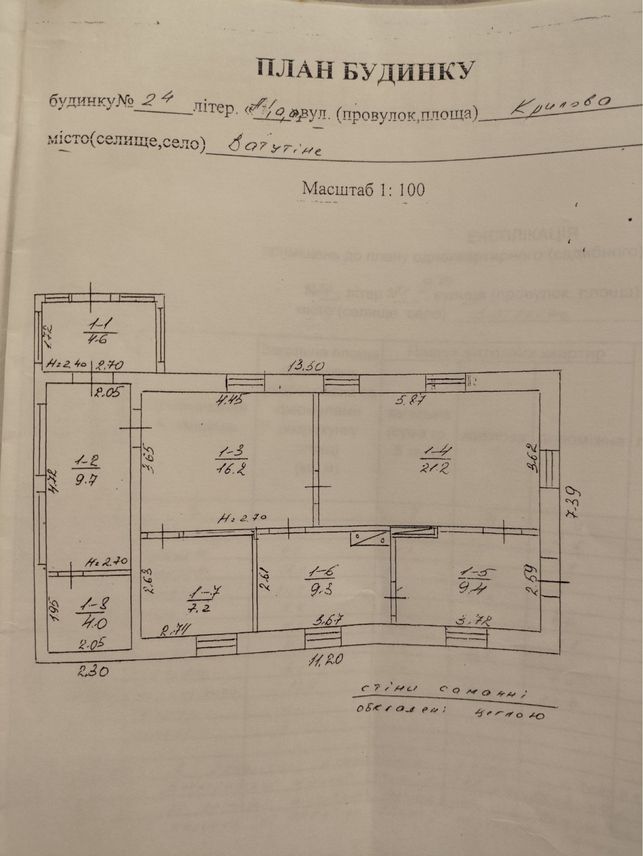 ПЛАН БУДИНКУ
будинку№ 24 літер. « вул. (провулок,площа) Крилова
місто(селище,село) Ватутіне
Масштаб 1: 100
1-1
4.6
1.72
H=2.40 2.70
13.50
2.05
4.45
5.87
1-2
9.7
4.72
H=2.70
3.65
1-3
16.2
H=2.70
1-4
21.2
3.62
7.39
1-8
4.0
1.95
2.05
2.30
2.63
1-7
7.2
2.74
2.61
1-6
9.3
3.67
1-5
9.4
3.72
2.59
11.20
стіни саманні
обкладені цеглою